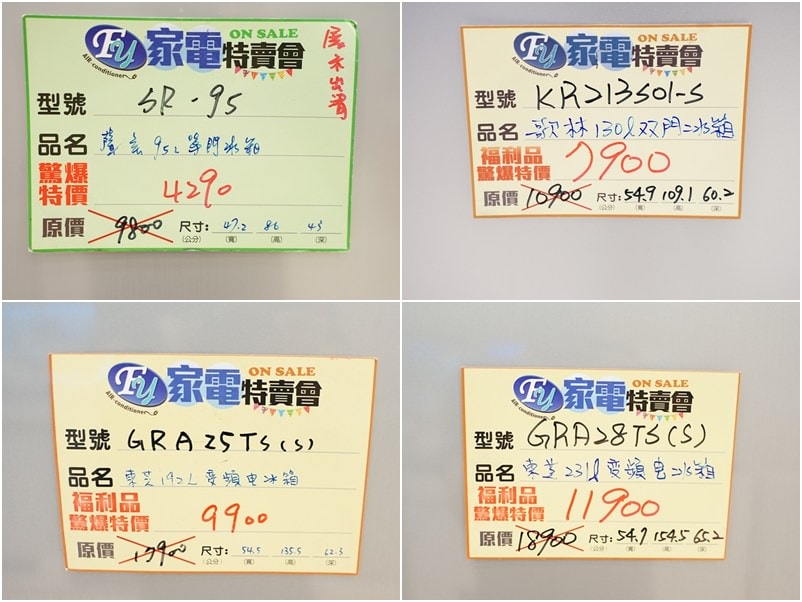 FY 家電特賣會 ON SALE
Air-conditioner
展示出清
型號 SR-95
品名 聲寶 95L 單門冰箱
驚爆特價 4290
原價 9800 尺寸: 47.2 86 43
(公分) (寬) (高) (深)
FY 家電特賣會 ON SALE
Air-conditioner
型號 KR213S01-S
品名 歌林 130l 双門冰箱
福利品
驚爆特價 7900
原價 10900 尺寸: 54.9 109.1 60.2
(公分) (寬) (高) (深)
FY 家電特賣會 ON SALE
Air-conditioner
型號 GRA25TS(S)
品名 東芝 192L 变頻电冰箱
福利品
驚爆特價 9900
原價 13900 尺寸: 54.5 135.5 62.3
(公分) (寬) (高) (深)
FY 家電特賣會 ON SALE
Air-conditioner
型號 GRA28TS(S)
品名 東芝 231l 变頻电冰箱
福利品
驚爆特價 11900
原價 18900 尺寸: 54.7 154.5 65.2
(公分) (寬) (高) (深)